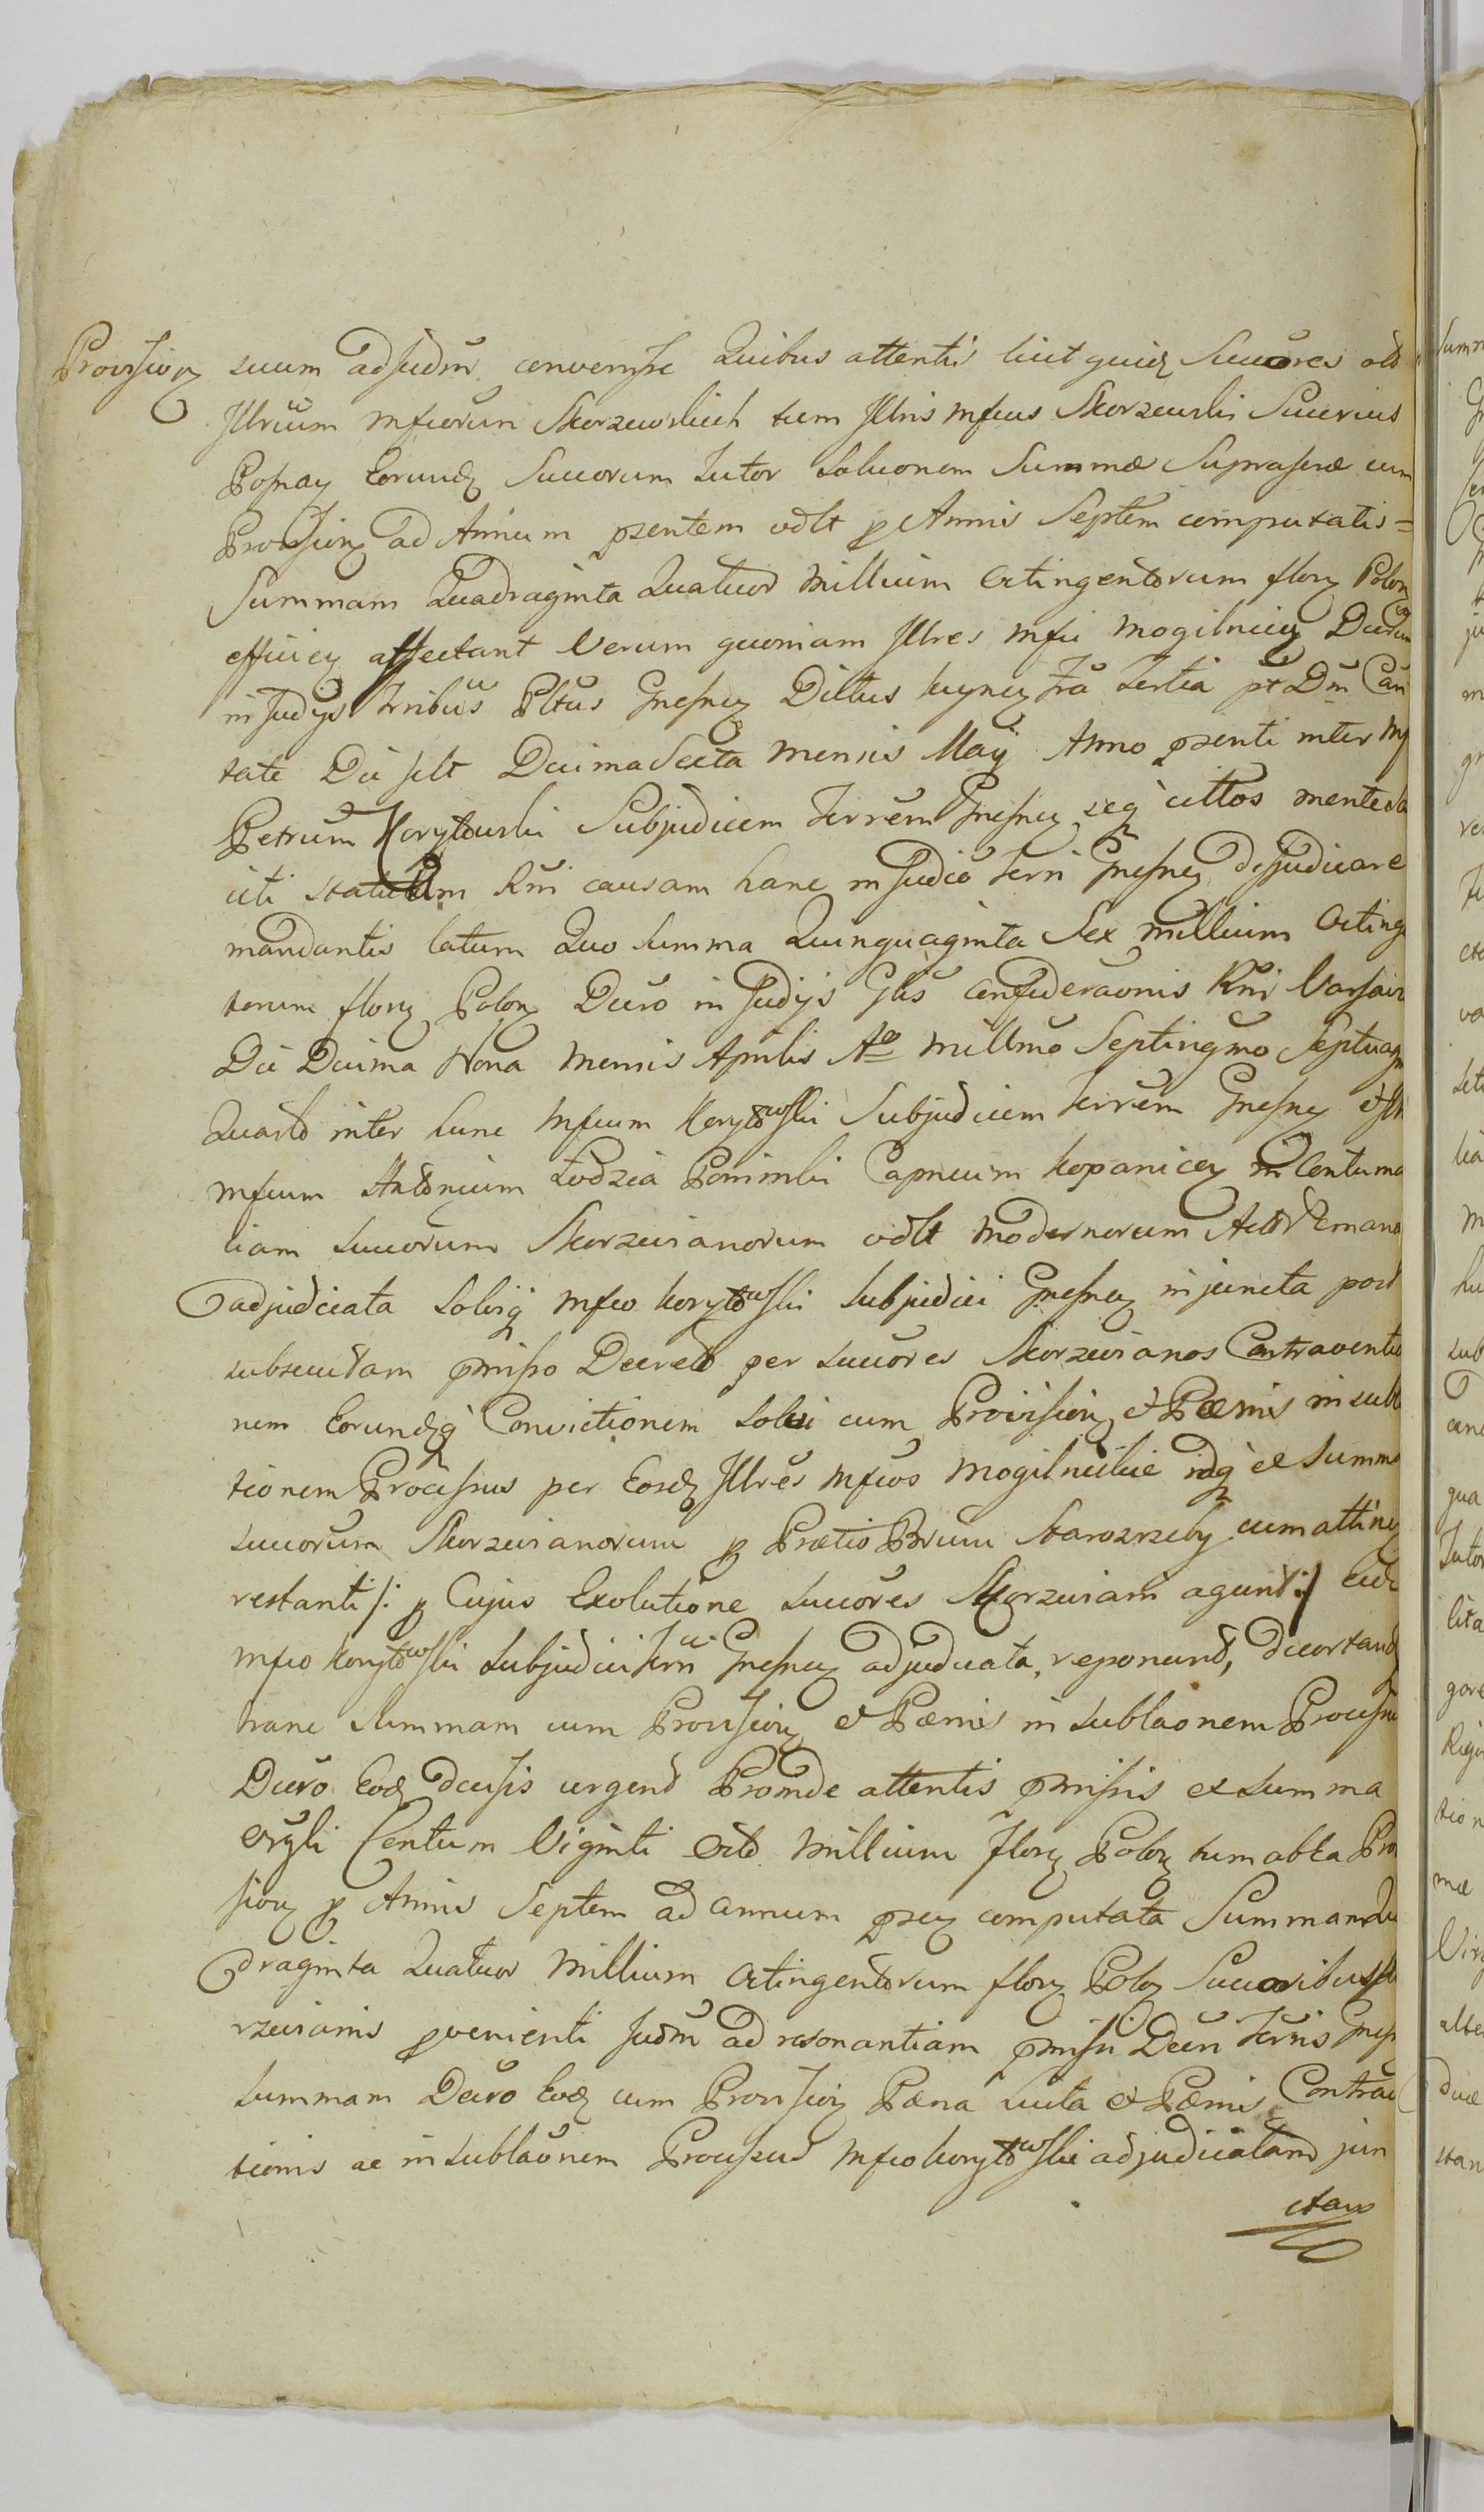 Provision suum ad Judm convenisse Quibus attentis licet quid Succores olo
Jllrium mfcorum Skorzewskich tum Jllris mfcus Skorzewski Succrius
Posnay Eorund Succorum Tutor Soluonem Summæ Suprascræ cum
Provision ad Annum pzentem vdlt p Annis Septem computatis =
Summam Quadraginta Quatuor Millium octingentorum flor Polon
efficien affectant Verum quoniam Jllres mfci Mogilnicy Decrum
in Judys Trribus Pltus Gnesney Dittus Kcynen fra Tertia pt Dm Can
tate Die sclt Decima Sexta Mensis May Anno pzenti inter Mf
Petrum Korytowski Subjudicem Terrem Gnesney seq cittos mente
uti Statutum Rni causam hanc in Judicio Terri Gnesney disjudicare
mandantis latum Quo Summa Quinquaginta Sex Millium Octing
torum flor Polon Decro in Judijs Glis Confideraonis Rni Varsavi
Die Decima Nona Mensis Aprilis Ao Millmo Septingmo Septuag
Quarto inter hunc Mfcum Korytowski Subjudicem Terrem Gnesney et
mfcum Antonium Łodzia Poninski Capneum Kopanicen in Contuma
ciam Succorum Skorzevianorum vdlt modernorum Actor Emana
adjudicata Solviq mfco Korytowski Subjudici Gnesney injuncta post
subsecutam pmisso Decreto per Succores Skorzevianos Contraventio
nem Eorundq Convictionem Solvi cum Provision et Pœnis in subla
tionem Processus per Eosd Jllres mfcos Mogilnickie idq ex Summa
Succorum Skorzevianorum p Prætio Brum Starozrzeby cum attinen
restanti /: p Cujus Exolutione Succores Skorzeviani agunt :/ Eid
mfco Korytowski Subjudici Terri Gnesney adjudicata, reponend, decortand
hanc Summam cum Provision et Pœnis in Sublaonem Processu
Decro Eod decisis urgend Proinde attentis pmissis ex Summa
orgli Centum Viginti Octo Millium flor Polon tum ab ea Pro
sion p Annis Septem ad annum pzen computata Summam Qu
draginta Quatuor Millium Octingentorum flor Polon Succoribus Sko
rzevianis pvenienti Judm ad resonantiam pmissi Decri Terris Gnesn
Summam Decro Eod cum Provision Pœna Lucta et Pœnis Contrav
tionis ac in Sublaonem Processus mfco Korytowski adjudicatam jun
ctam